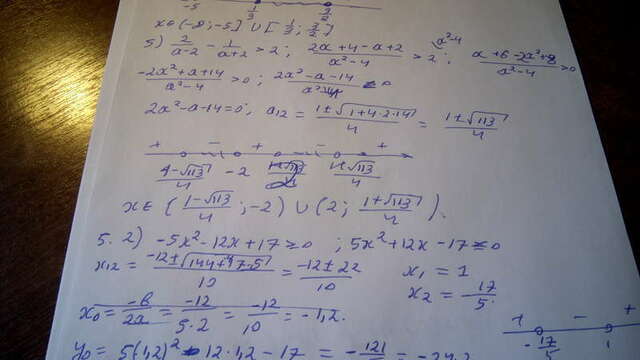 -5 1/3 3/2
x∈(-8;-5] ∪ [1/3; 3/2]
5) 2/(a-2) - 1/(a+2) > 2; (2a+4-a+2)/(a²-4) > 2; a²-4 (a+6-2a²+8)/(a²-4) > 0
(-2a²+a+14)/(a²-4) > 0; (2a²-a-14)/(a²-4) < 0
2a²-a-14=0; a12 = (1±√(1+4·2·14))/4 = (1±√113)/4
+ - + - +
(1-√113)/4 -2 (1+√113)/4
x∈ ((1-√113)/4; -2) ∪ (2; (1+√113)/4).
5. 2) -5x²-12x+17≥0; 5x²+12x-17≤0
x12 = (-12±√(144+4·17·5))/10 = (-12±22)/10 x1 = 1
x2 = -17/5.
x0 = -b/2a = -12/5·2 = -12/10 = -1,2.
+ - +
-17/5 1
y0 = 5(1,2)² - 12·1,2 - 17 = -121/5 = -24,2